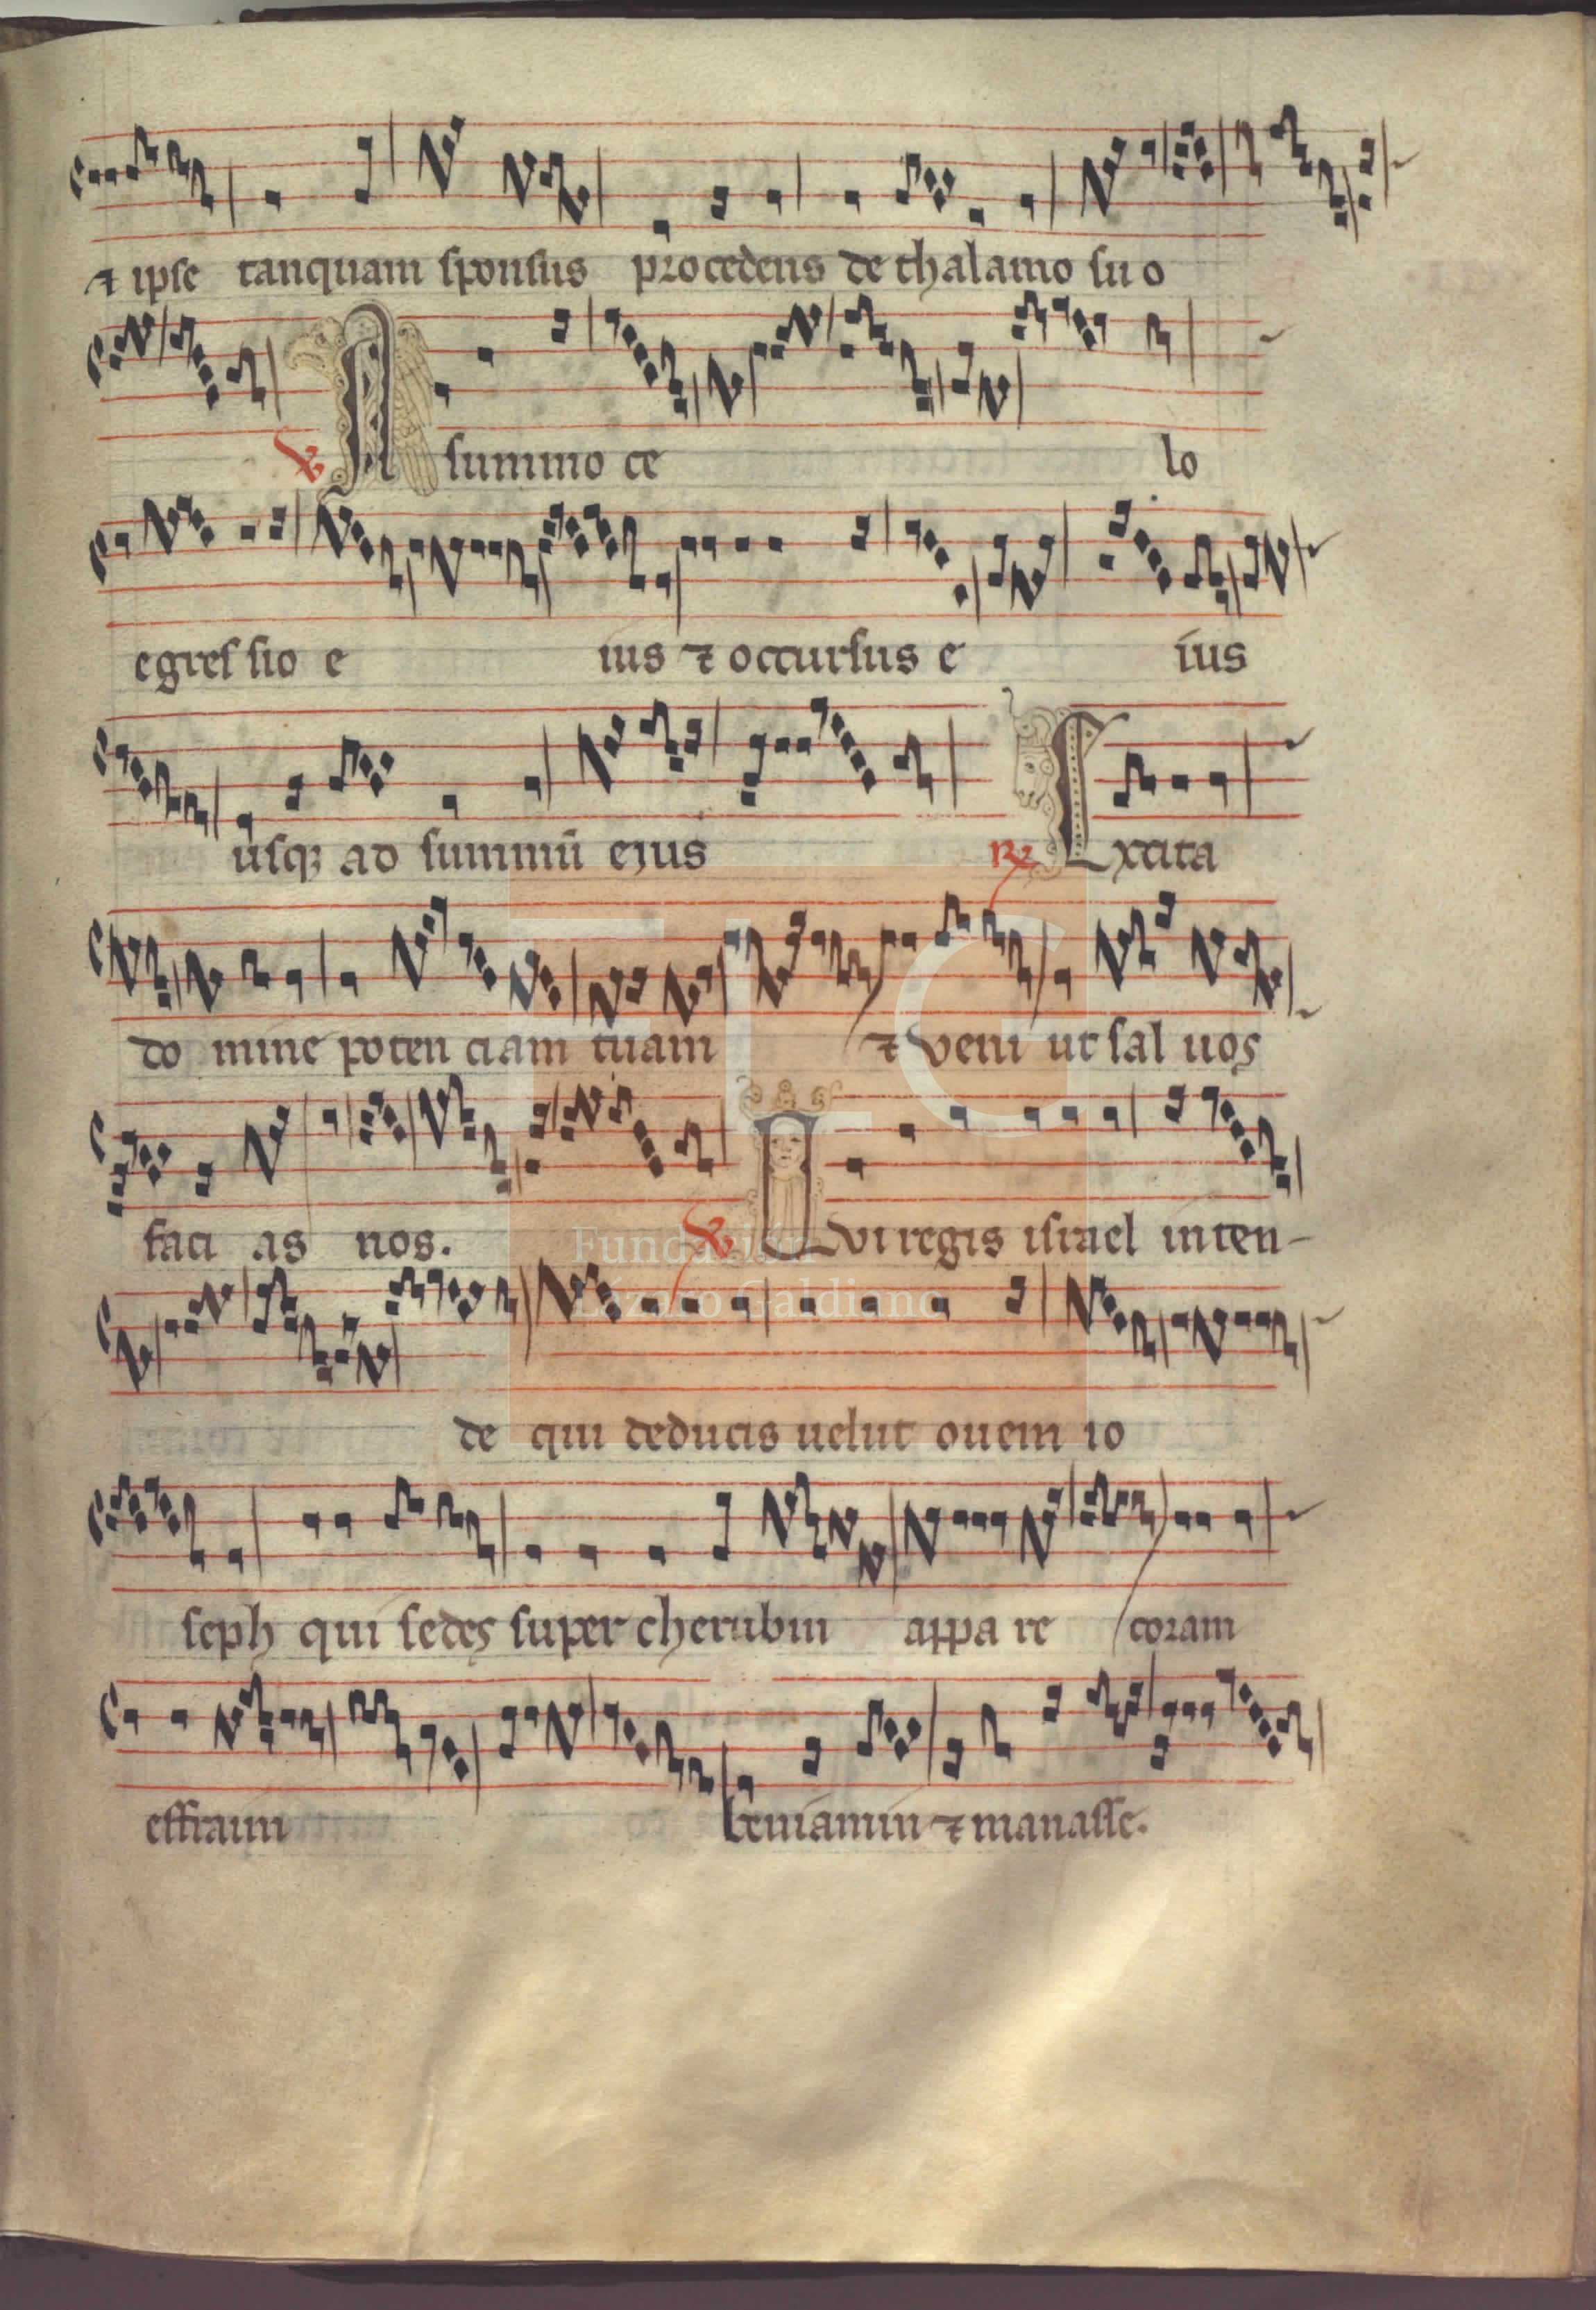 ⁊ ipse tanquam sponsus procedens de thalamo su o
℣ A summo ce lo
egres sio e ius ⁊ occursus e ius
usqꝫ ad summū ejus ℟ Excita
do mine poten ciam tuam ⁊ veni ut sal uos
faci as nos. ℣ Qvi regis israel inten-
de qui deducis uelut ouem io
seph qui sedes super cherubin appa re coram
effraim beniamin ⁊ manasse.
FLG
Fundación
Lázaro Galdiano